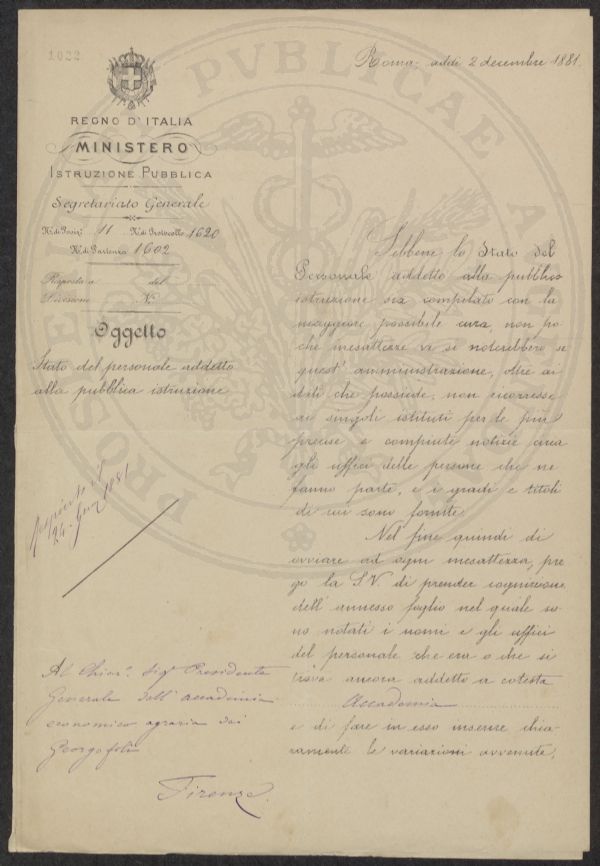 1022
Roma, addì 2 decembre 1881.
REGNO D'ITALIA
MINISTERO
ISTRUZIONE PUBBLICA
Segretariato Generale
N.º di Posiz.e 11 N.º di Protocollo 1620
N.º di Partenza 1602
Risposta a del
Divisione N.
Oggetto
Stato del personale addetto
alla pubblica istruzione
Sebbene lo Stato del
Personale addetto alla pubblica
istruzione sia compilato con la
maggiore possibile cura, non po
che inesattezze vi si noterebbero se
quest' amministrazione, oltre ai
dati che possiede, non ricorresse
ai singoli istituti per le più
precise e compiute notizie circa
gli uffici delle persone che ne
fanno parte, e i gradi e titoli
di cui sono fornite.
Nel fine quindi di
ovviare ad ogni inesattezza, pre
go la S.V. di prender cognizione
dell' annesso foglio nel quale so
no notati i nomi e gli uffici
del personale che era o che si
trova ancora addetto a cotesta
Accademia
e di fare in esso inserire chia-
ramente le variazioni avvenute,
24. 1881
Al Chiar.º Sig.r Presidente
Generale dell' accademia
economico agraria dei
Georgofili
Firenze.
PVBLICAE